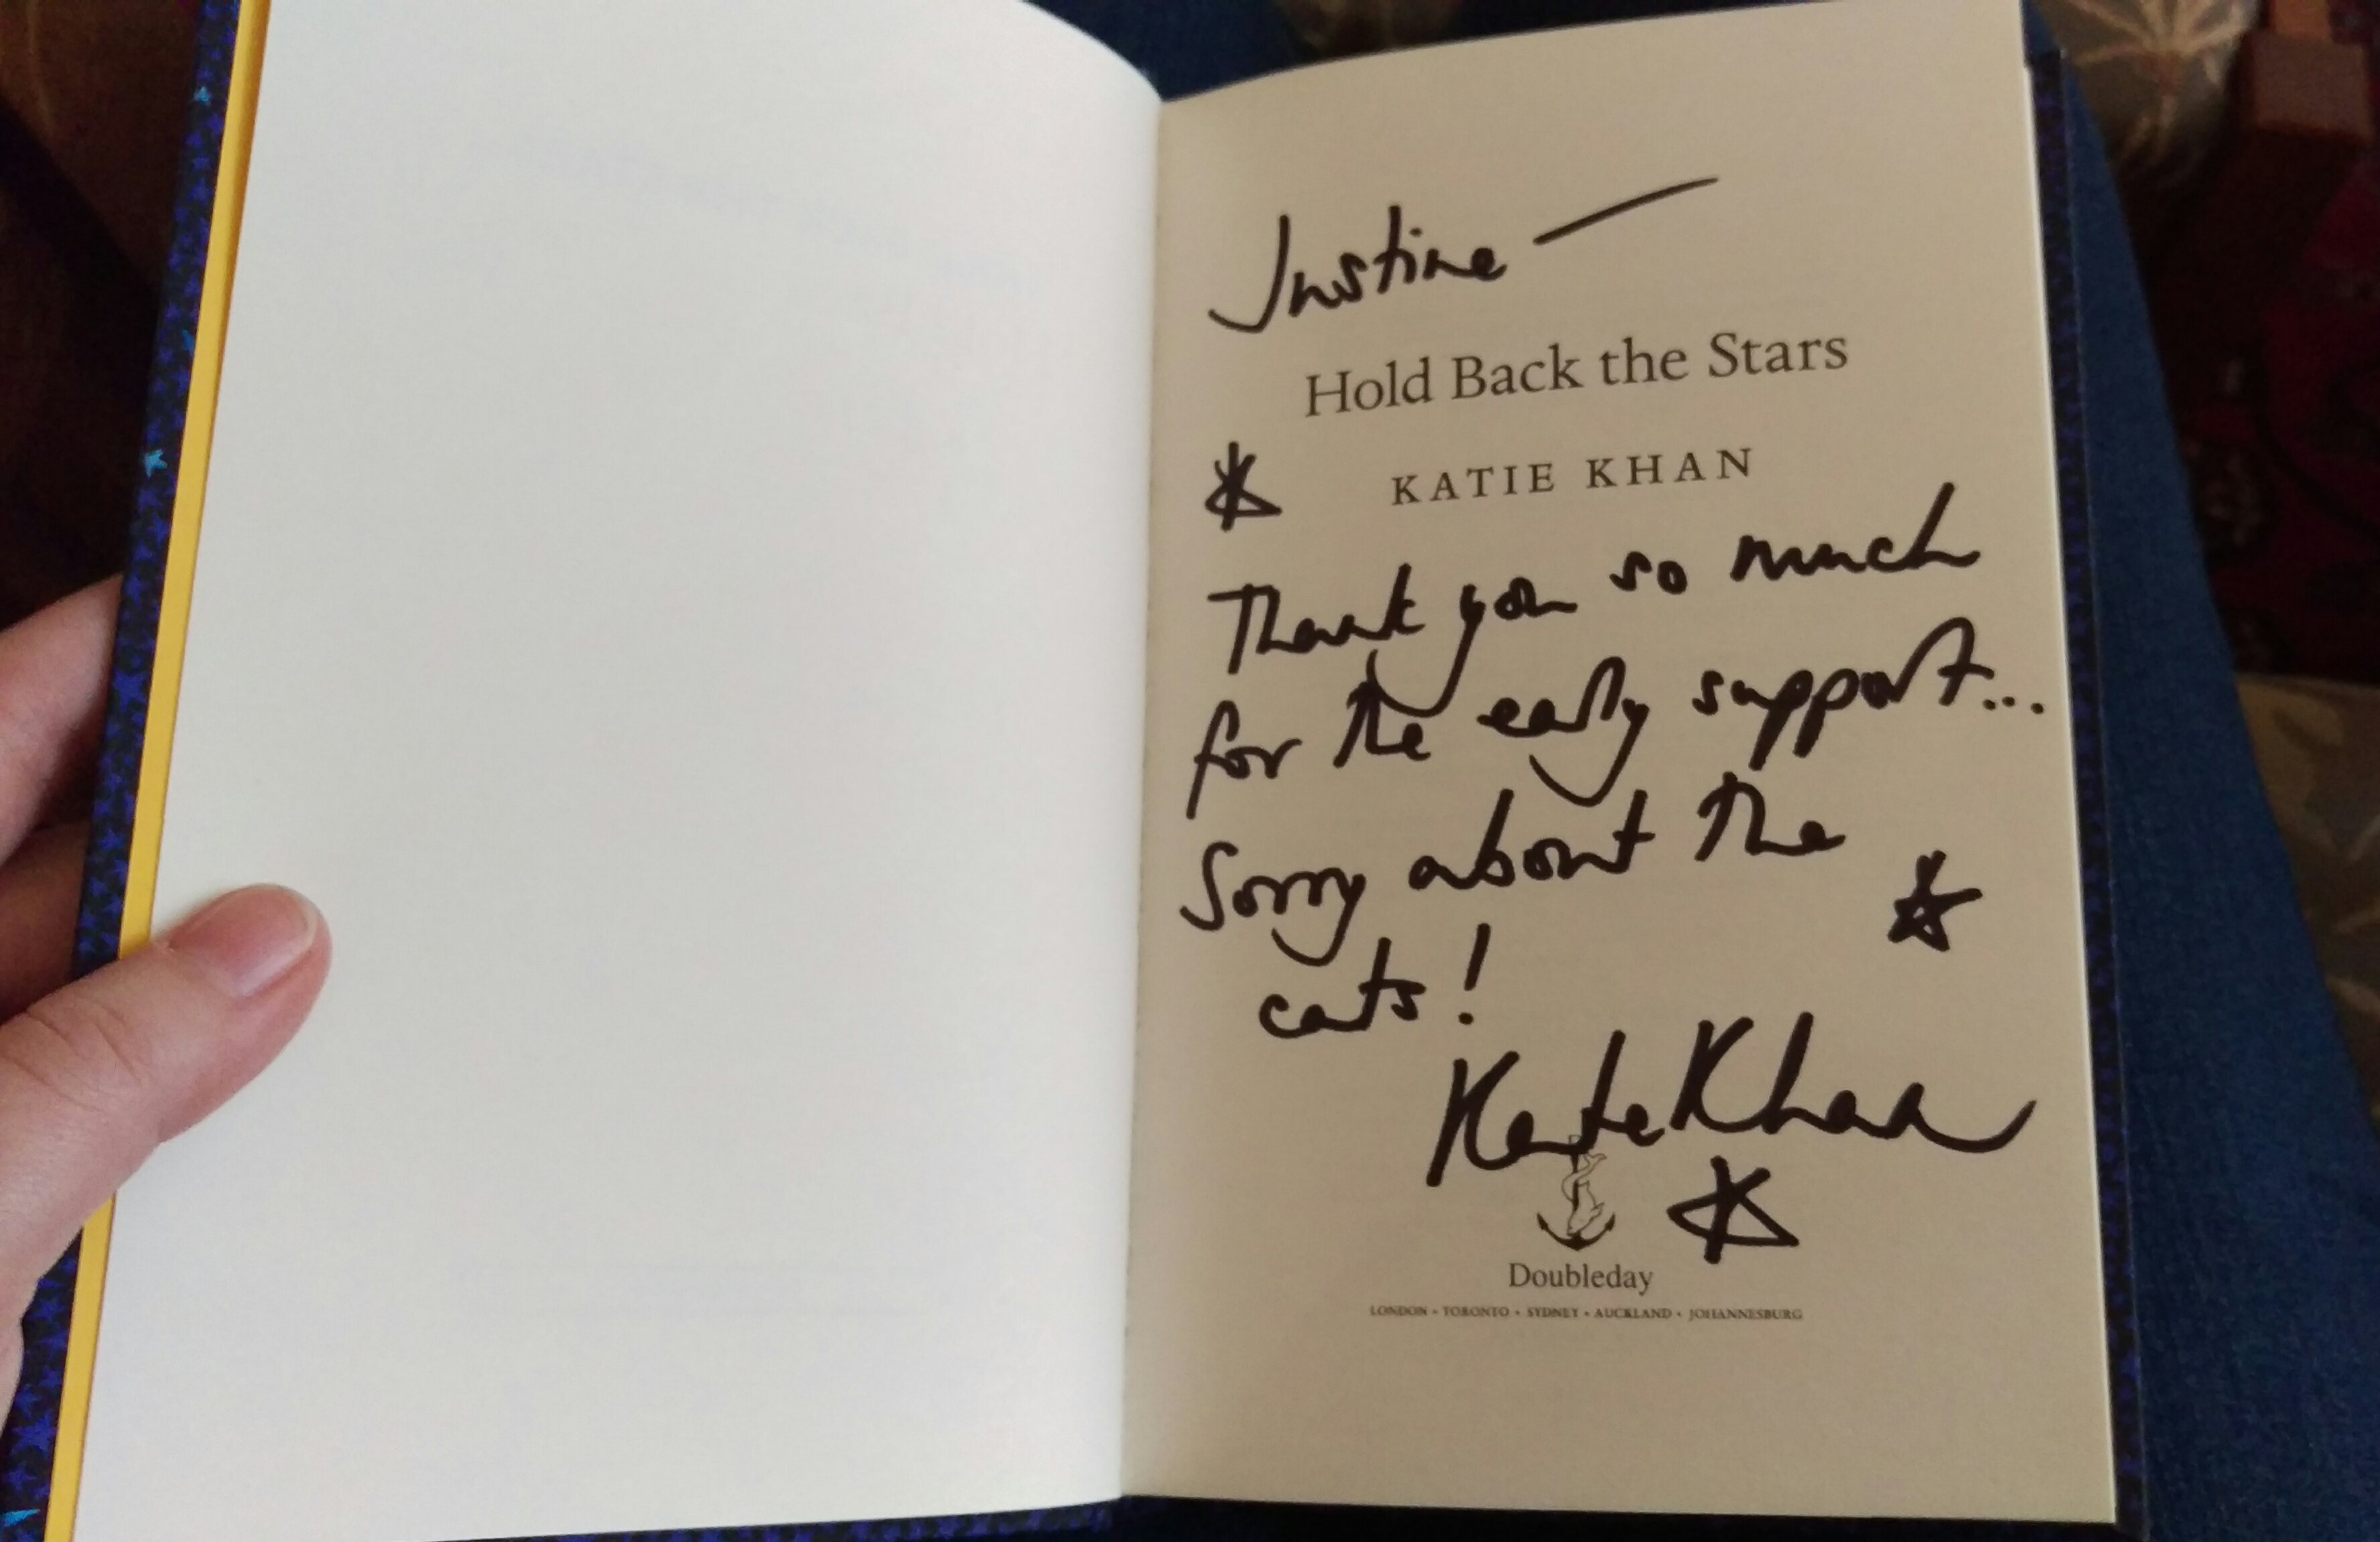 Justine —
Hold Back the Stars
KATIE KHAN
Thank you so much
for the early support...
Sorry about the
cats!
Katie Khan
Doubleday
LONDON • TORONTO • SYDNEY • AUCKLAND • JOHANNESBURG